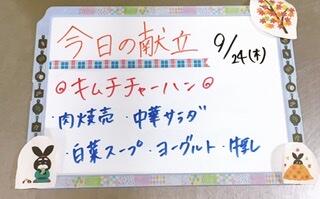 今日の献立 9/24(木)
◎キムチチャーハン◎
・肉焼売 ・中華サラダ
・白菜スープ・ヨーグルト・牛乳